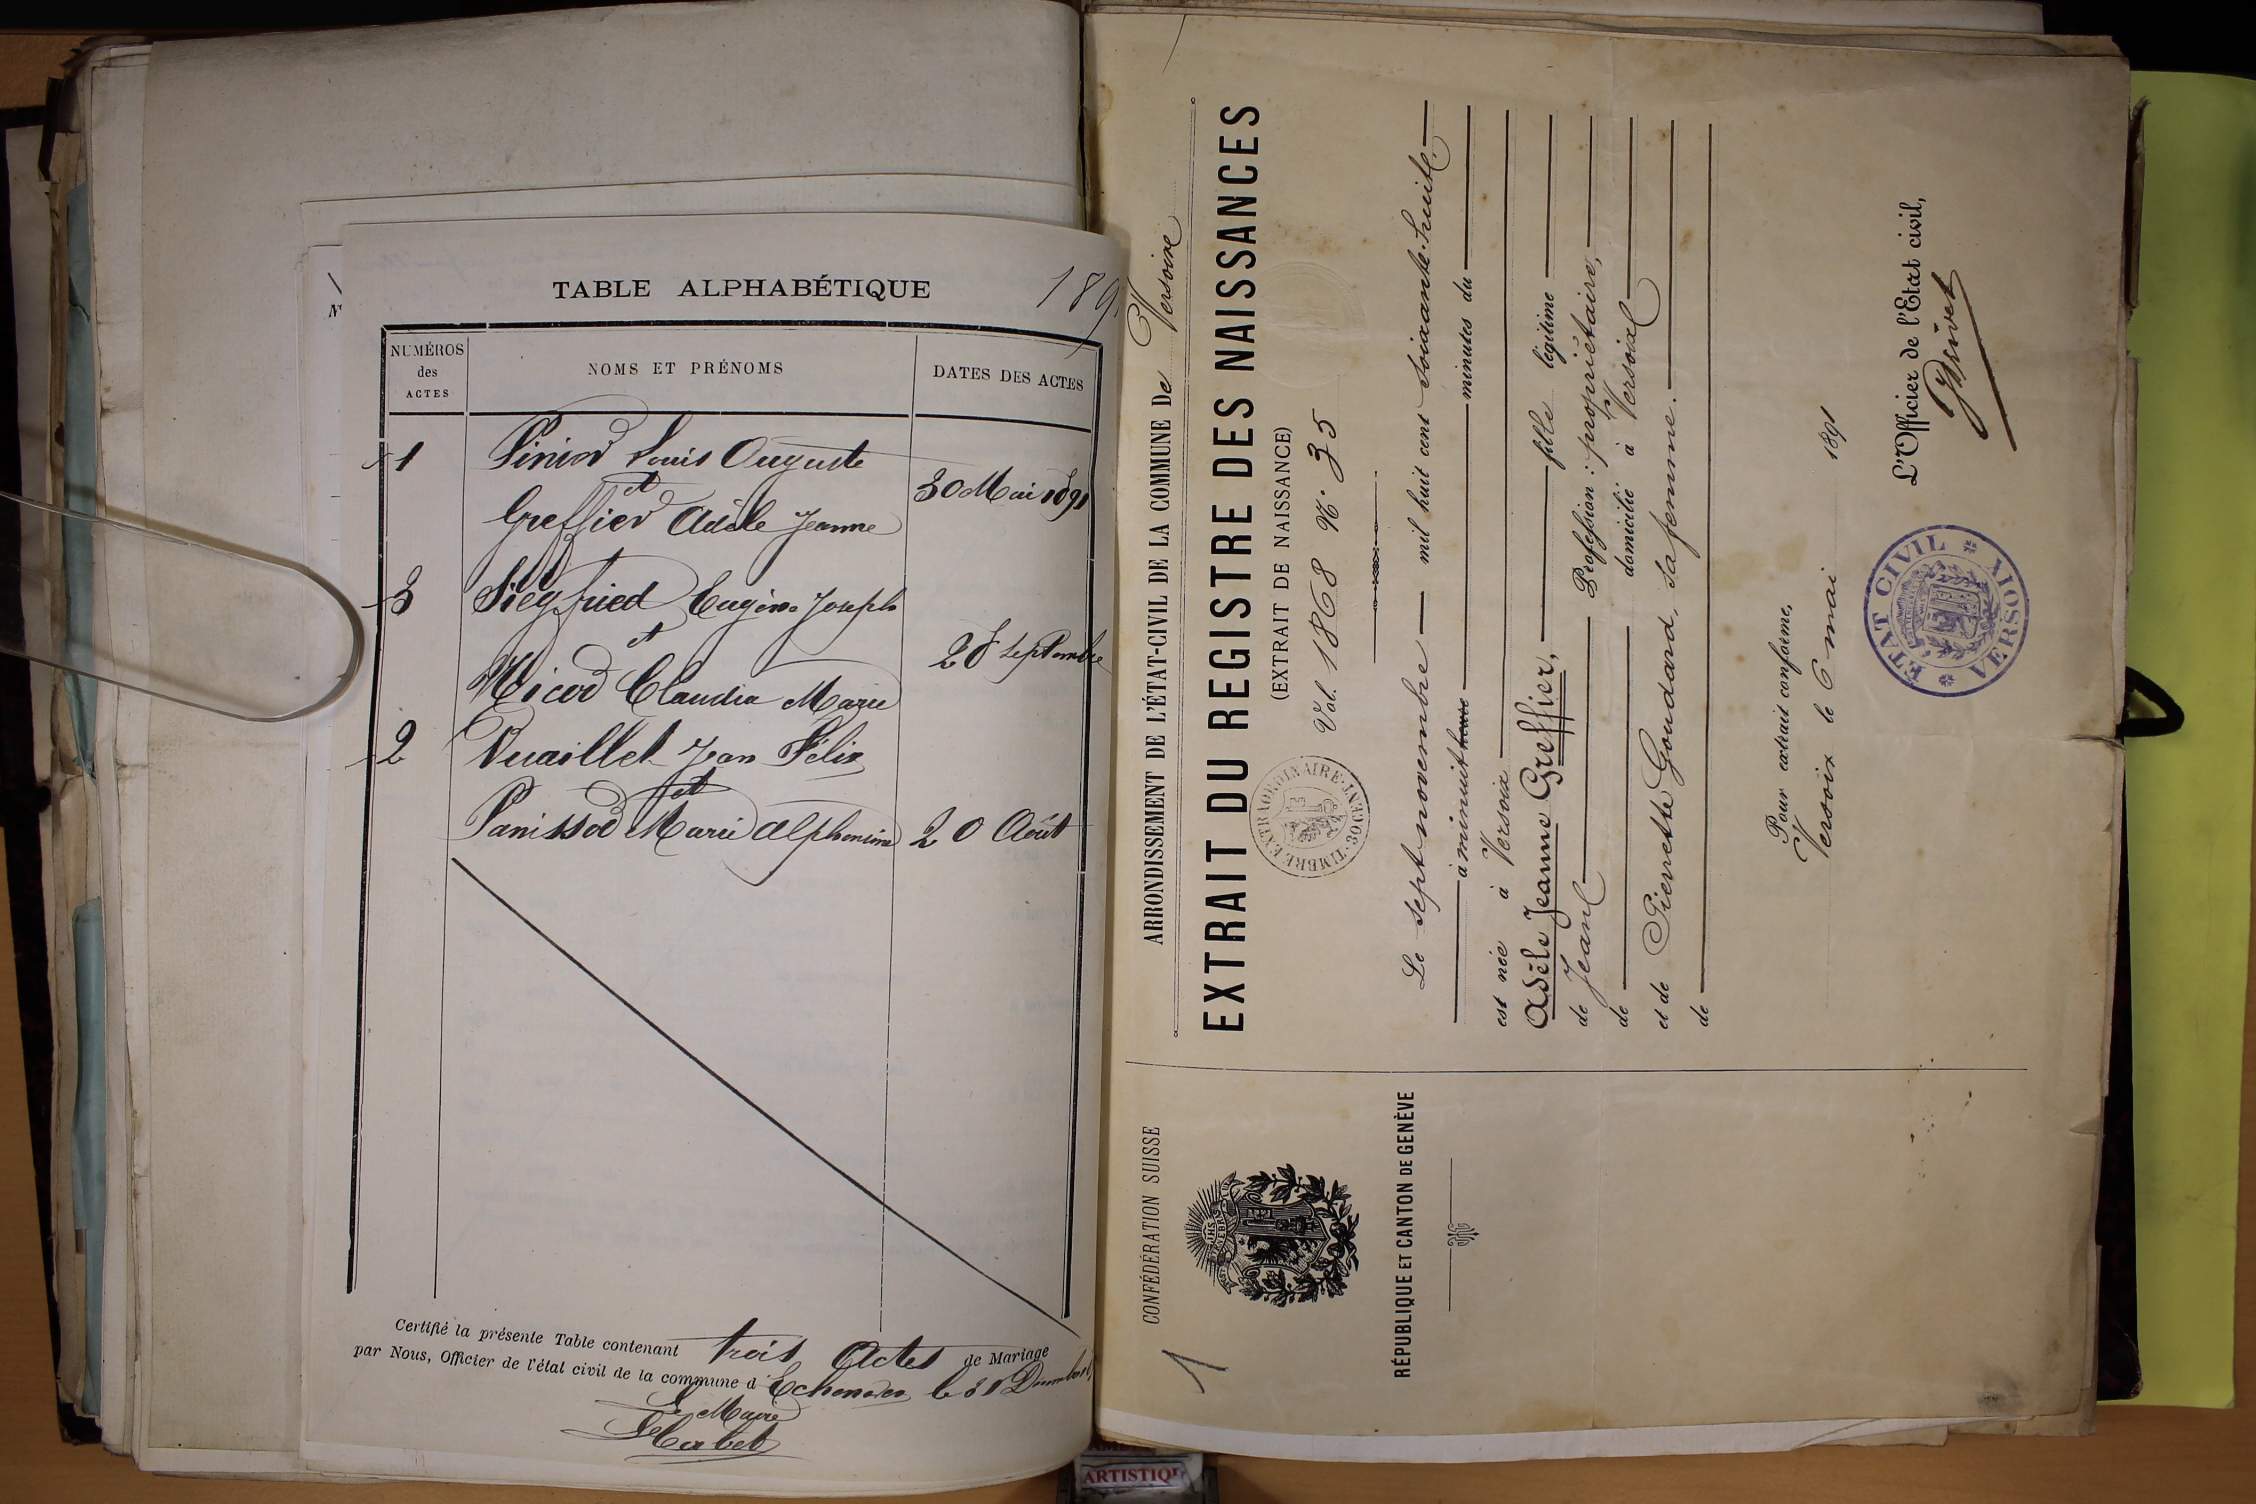 TABLE ALPHABÉTIQUE
189
NUMÉROS
des
ACTES
NOMS ET PRÉNOMS
DATES DES ACTES
1 Pinior Louis Auguste
et
30 Mai 1891
Greffier Adèle Jeanne
3 Siegfried Eugène Joseph
et
28 Septembre
Nicod Claudia Marie
2 Vuaillet Jean Félix
et
Panissod Marie Alphonsine 20 Août
Certifié la présente Table contenant trois Actes de Mariage
par Nous, Officier de l'état civil de la commune d'Echenevex le 31 Décembre
Le Maire
ARRONDISSEMENT DE L'ÉTAT-CIVIL DE LA COMMUNE De Versoix
EXTRAIT DU REGISTRE DES NAISSANCES
(EXTRAIT DE NAISSANCE)
Vol. 1868 N. 35
TIMBRE EXTRAORDINAIRE
Le sept novembre mil huit cent soixante-huit
à minuit heure minutes du
est née à Versoix
Adèle Jeanne Greffier, fille légitime
de Jean Profession: propriétaire,
de domicilié à Versoix
et de Pierrette Goudard, sa femme.
de
Pour extrait conforme,
Versoix le 6 mai 1891
L'Officier de l'Etat civil,
ETAT CIVIL
VERSOIX
CONFÉDÉRATION SUISSE
RÉPUBLIQUE ET CANTON DE GENÈVE
1
ARTISTIQ